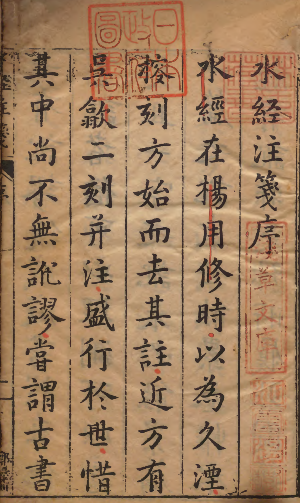 水經注箋序
水經在楊用修時以為久湮
榕刻方始而去其註近方有
吳歙二刻并注盛行於世惜
其中尚不無訛謬嘗謂古書